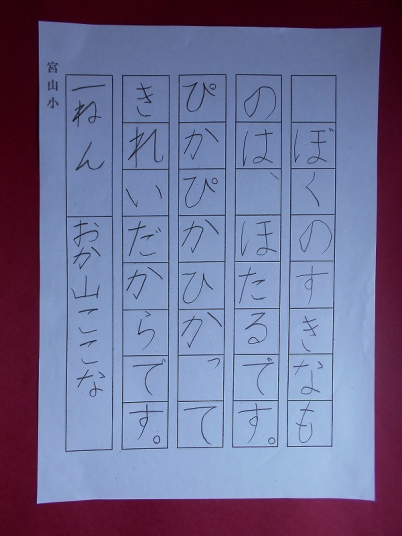 ぼくのすきなも
のは、ほたるです。
ぴかぴかひかって
きれいだからです。
一ねん おか山ここな
宮山小